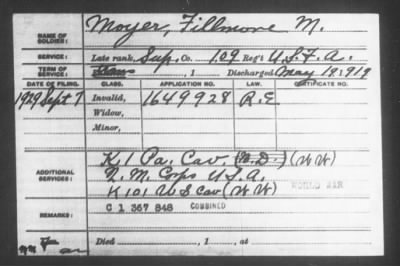 NAME OF SOLDIER: Moyer, Fillmore M.
SERVICE: Late rank, Sup. Co. 109 Reg't U.S.F.A.
TERM OF SERVICE: , 1 Discharged May 19, 1919
DATE OF FILING. CLASS. APPLICATION NO. LAW. CERTIFICATE NO.
1929 Sept 7 Invalid, 1649928 R.E.
Widow,
Minor,
K 1 Pa. Cav. (N.D.) (WW)
ADDITIONAL SERVICES: Q. M. Corps U.S.A.
K 101 U S Cav (WW) WORLD WAR
REMARKS: C 1 367 848 COMBINED
Died , 1 , at